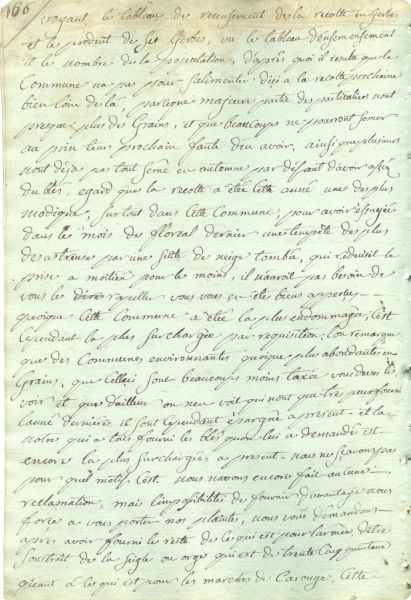 166
voyant le tableau de recensement de la recolte en Gerbes
et le produit de ses Gerbes, vu le tableau d'ensemensement
et le nombre de la population, d'apres quoi il resulte que la
Commune n'a pas pour s'alimenter d'ici a la recolte prochaine
bien loin de la, parceque majeure partie des particuliers n'ont
presque plus de Grains, et que beaucoups ne pouront semer
au prin tems prochain faute d'en avoir, ainsi que plusieurs
n'ont déja pas tout semé en automne par défaut d'avoir assés
du bles, egard que la recolte a étée cette année une des plus
modique, surtout dans cette Commune, pour avoir essuyée
dans le mois de floreal dernier une tempête des plus
desastreuse par une suite de neige tombée, qui réduisit la
prise a moitiée pour le moins, il n'auroit pas besoin de
vous le dire rapeller vous vous en etes biens appercus
quoique cette Commune a étée la plus endommagée, c'est
cependant la plus surchargée par requisition, l'on remarque
que des Communes environnantes quoique plus abondantes en
Grains, que celleci sont beaucoups moins taxée vous devés le
voir et que d'ailleur on n'en voit qui n'ont que tres peu fourni
l'année derniere, et sont cependant épargnée a present et la
notre qui a tous fourni les bles qu'on lui a demandé est
encore la plus surchargée a present nous ne savons pas
pour quel motif c'est. nous n'avons encore fait aucune
reclamation, mais l'impossibilité de fournir d'avantage nous
force a vous porter nos plaintes, nous vous demandons
apres avoir fourni le reste de ce qui est pour l'armée d'etre
soustrait de la seigle ou orge qui est de trente cinq quintaux
quant a ce qui est pour les marchés de Carouge, cette